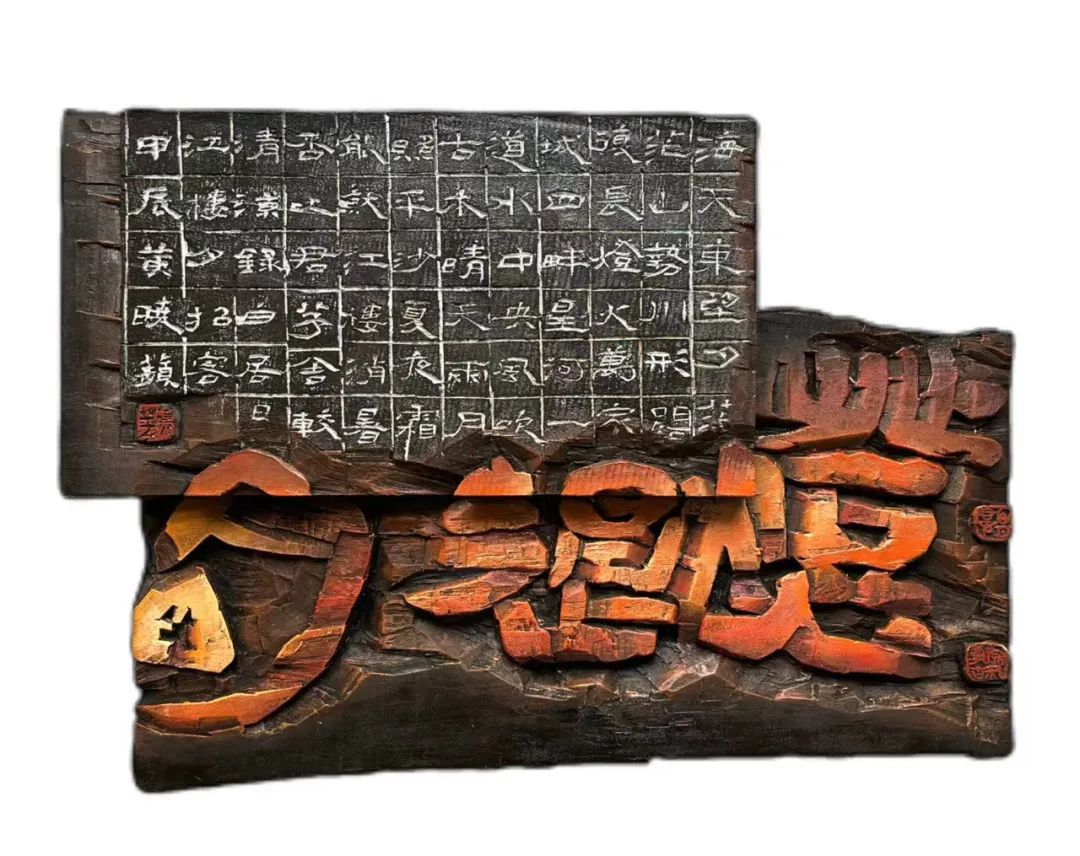 海天東望夕茫
茫山勢川形闊
復長燈火萬家
城四畔星河一
道水中央風吹
古木晴天雨月
照平沙夏夜霜
能就江樓消暑
否比君茅舍較
清涼錄白居易
江樓夕招客
甲辰黃曉蘋